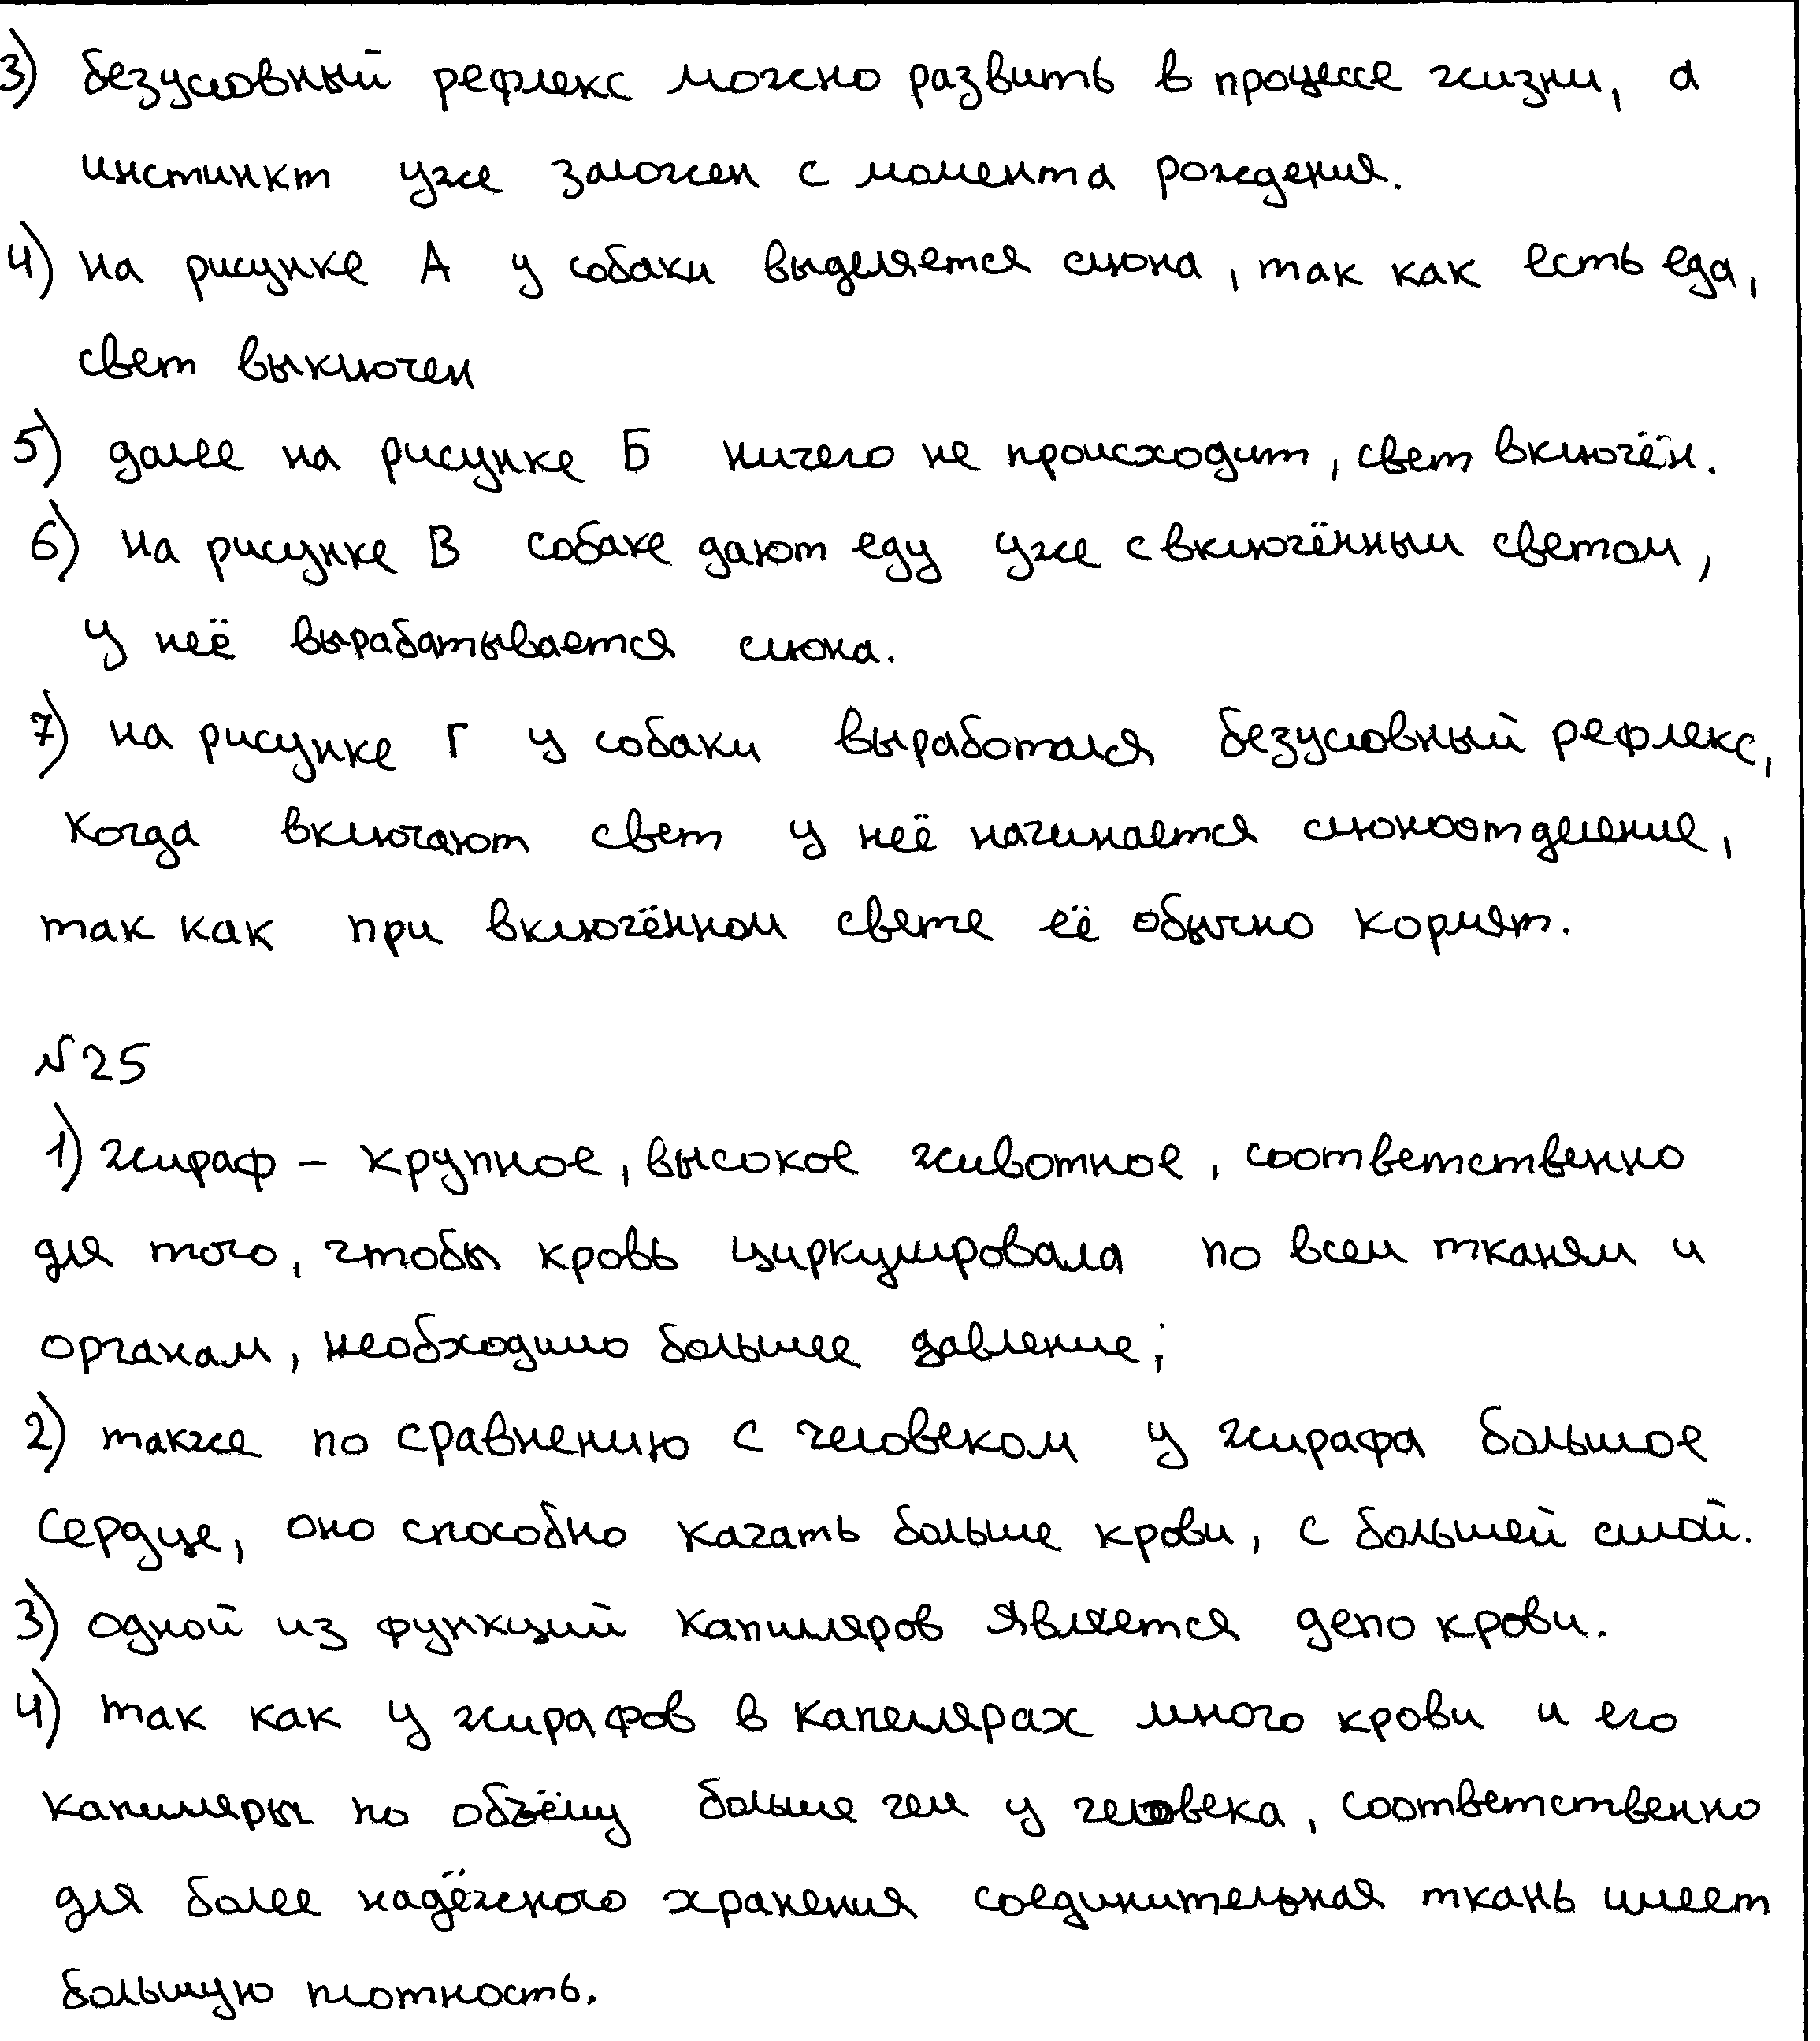 3) безусловный рефлекс можно развить в процессе жизни, а
инстинкт уже заложен с момента рождения.
4) на рисунке А у собаки выделяется слюна, так как есть еда,
свет выключен
5) далее на рисунке Б ничего не происходит, свет включён.
6) на рисунке В собаке дают еду уже с включённым светом,
у неё вырабатывается слюна.
7) на рисунке Г у собаки выработался безусловный рефлекс,
когда включают свет у неё начинается слюноотделение,
так как при включённом свете её обычно кормят.
№25
1) жираф – крупное, высокое животное, соответственно
для того, чтобы кровь циркулировала по всем тканям и
органам, необходимо большее давление;
2) также по сравнению с человеком у жирафа большое
сердце, оно способно качать больше крови, с большей силой.
3) одной из функций капилляров является депо крови.
4) так как у жирафов в капелярах много крови и его
капилляры по объёму больше чем у человека, соответственно
для более надёжного хранения соединительная ткань имеет
большую плотность.